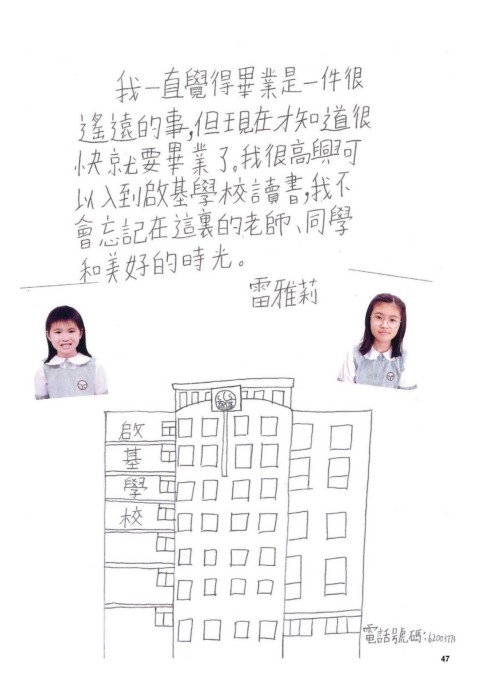 我一直覺得畢業是一件很
遙遠的事,但現在才知道很
快就要畢業了。我很高興可
以入到啟基學校讀書,我不
會忘記在這裏的老師、同學
和美好的時光。
雷雅莉
CCS
啟
基
學
校
電話號碼:
47